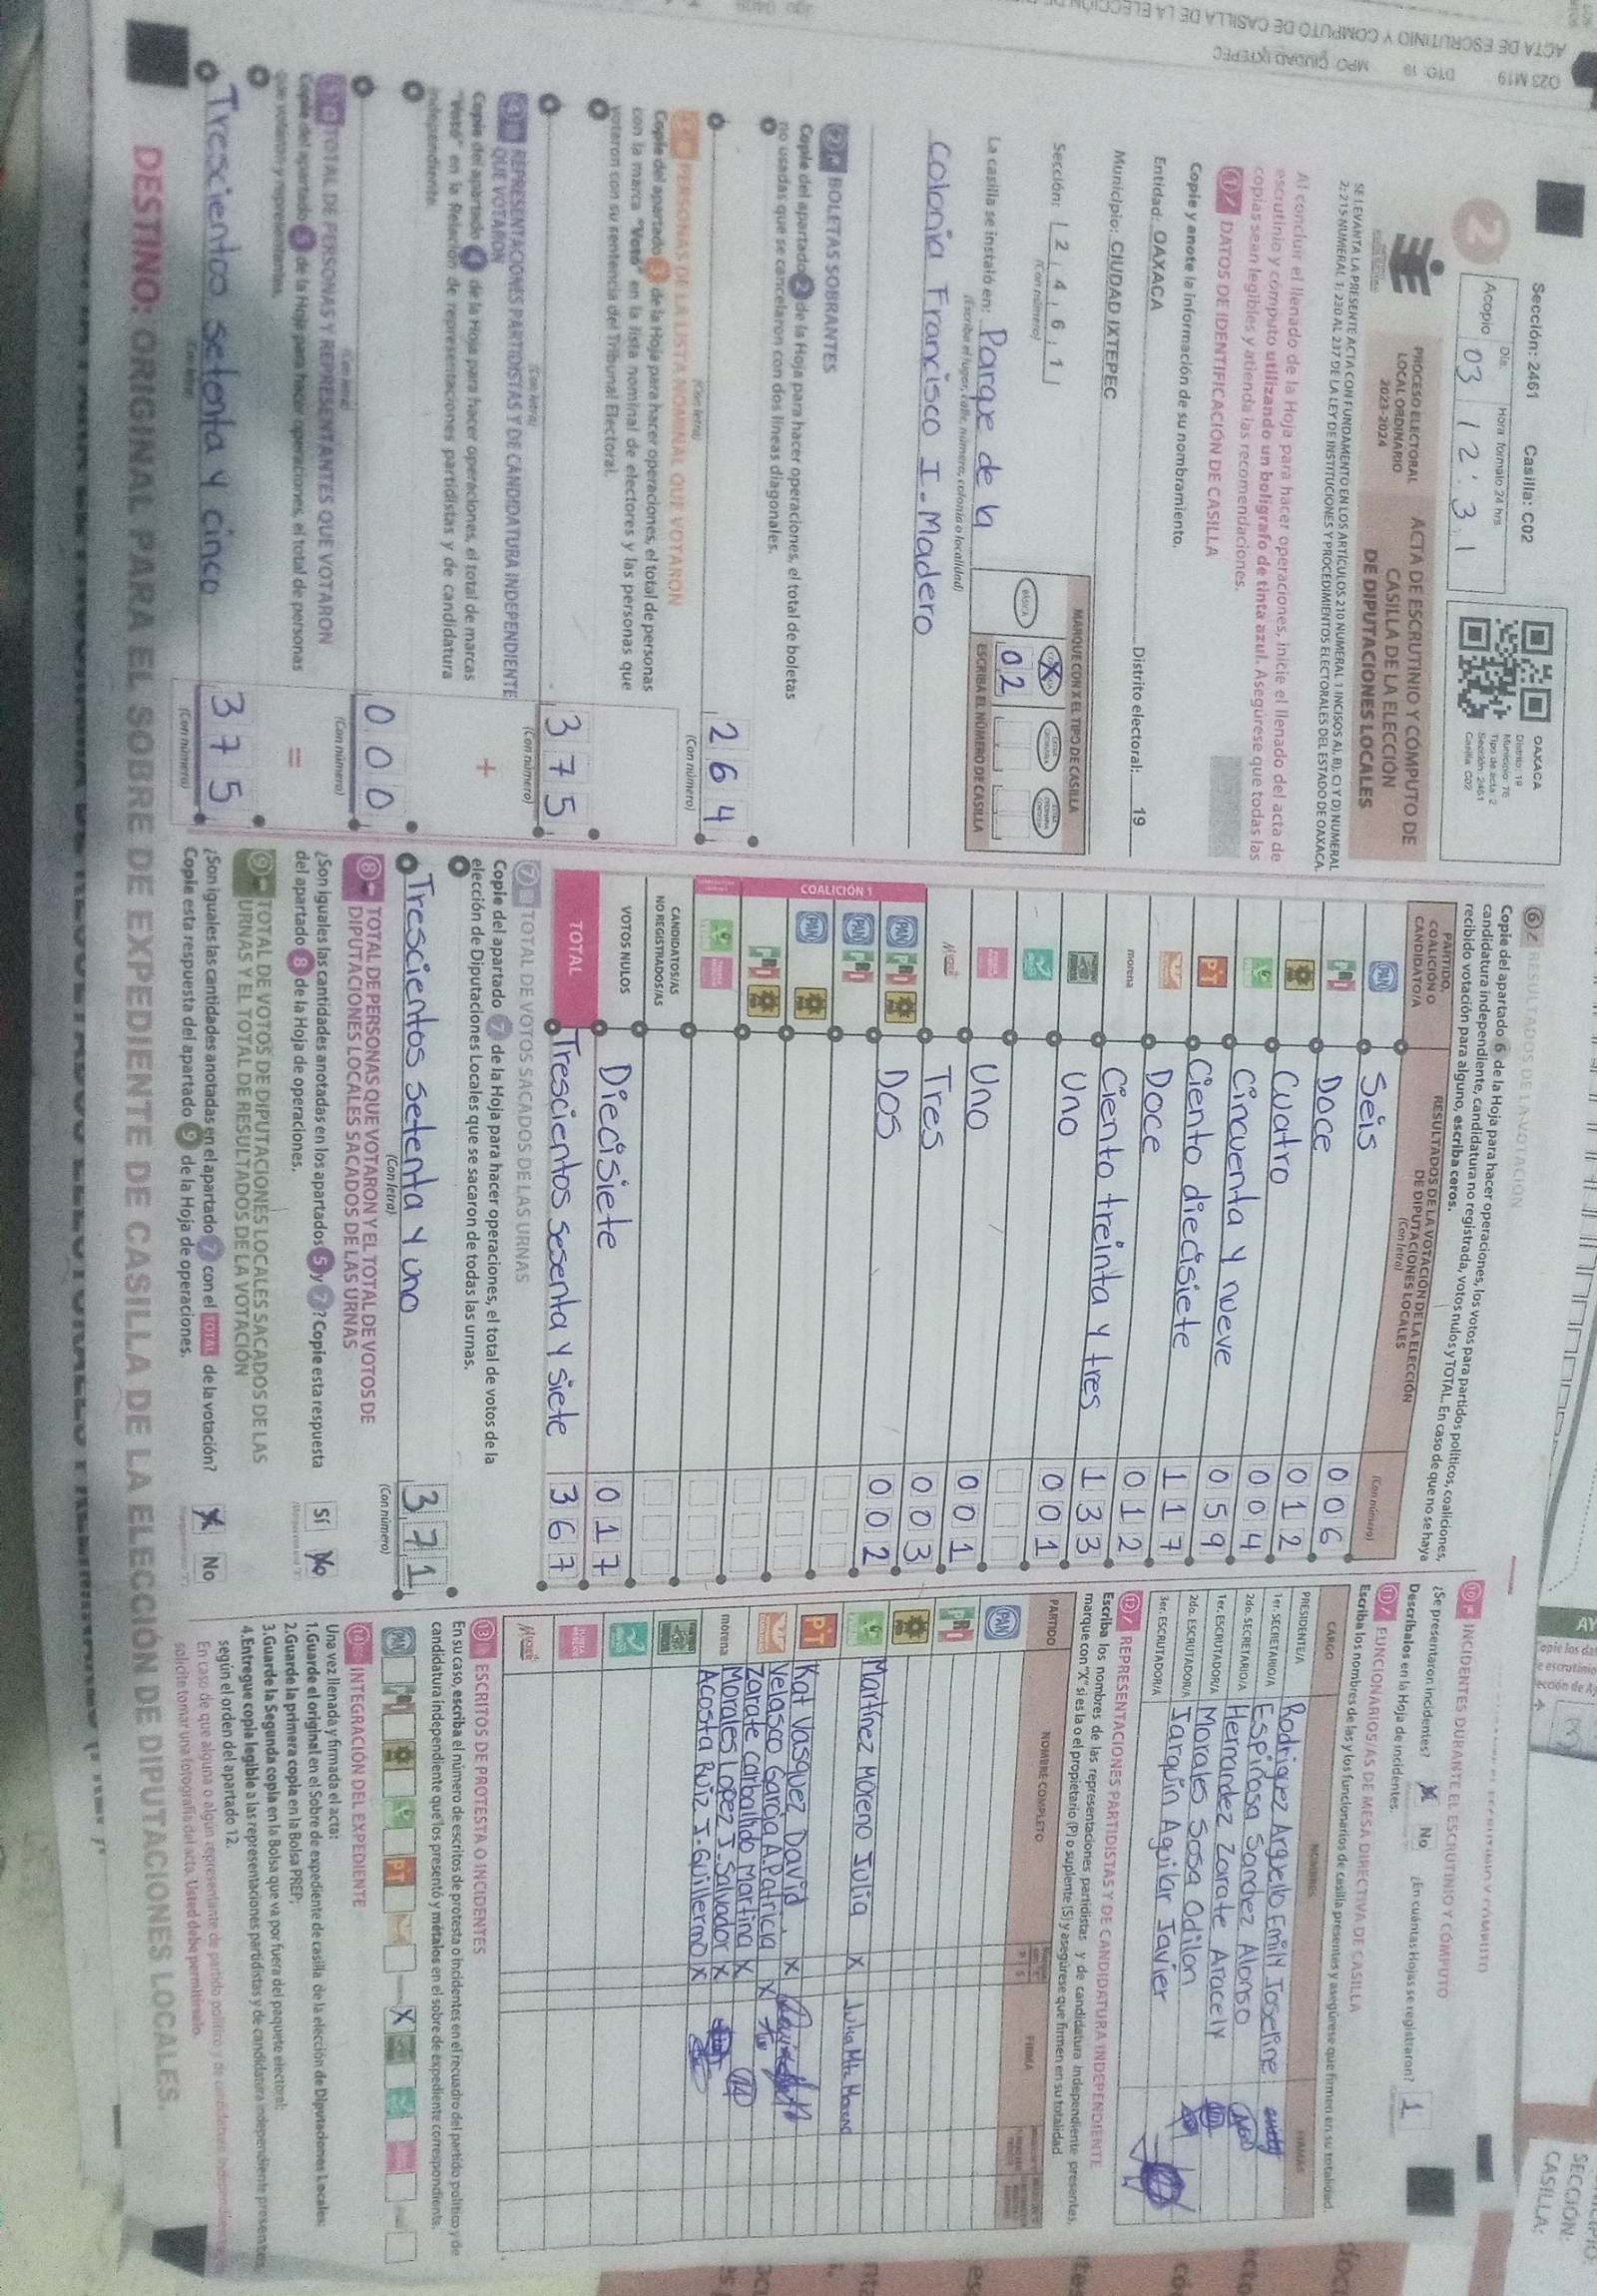 ACTA DE ESCRUTINIO Y CÓMPUTO DE CASILLA DE LA ELECCIÓN DE
023 M19 DTO. 19 MPO. CIUDAD IXTEPEC
Sección: 2461 Casilla: C02
Día Hora formato 24 hrs
Acopio 03 12:31
OAXACA
Distrito: 19
Municipio: 76
Tipo de acta: 2
Sección: 2461
Casilla: C02
2
PROCESO ELECTORAL
LOCAL ORDINARIO
2023-2024
ACTA DE ESCRUTINIO Y CÓMPUTO DE
CASILLA DE LA ELECCIÓN
DE DIPUTACIONES LOCALES
SE LEVANTA LA PRESENTE ACTA CON FUNDAMENTO EN LOS ARTÍCULOS 210 NUMERAL 1 INCISOS A), B), C) Y D) NUMERAL
2; 215 NUMERAL 1; 230 AL 237 DE LA LEY DE INSTITUCIONES Y PROCEDIMIENTOS ELECTORALES DEL ESTADO DE OAXACA.
Al concluir el llenado de la Hoja para hacer operaciones, inicie el llenado del acta de
escrutinio y cómputo utilizando un bolígrafo de tinta azul. Asegúrese que todas las
copias sean legibles y atienda las recomendaciones.
1 DATOS DE IDENTIFICACIÓN DE CASILLA
Copie y anote la información de su nombramiento.
Entidad: OAXACA Distrito electoral: 19
Municipio: CIUDAD IXTEPEC
Sección: 2 4 6 1
(Con número)
MARQUE CON X EL TIPO DE CASILLA
BÁSICA X
02
ESCRIBA EL NÚMERO DE CASILLA
La casilla se instaló en: Parque de la
(Escriba el lugar, calle, número, colonia o localidad)
colonia Francisco I. Madero
2 BOLETAS SOBRANTES
Copie del apartado 2 de la Hoja para hacer operaciones, el total de boletas
no usadas que se cancelaron con dos líneas diagonales.
(Con letra)
264
(Con número)
3 PERSONAS DE LA LISTA NOMINAL QUE VOTARON
Copie del apartado 3 de la Hoja para hacer operaciones, el total de personas
con la marca "Votó" en la lista nominal de electores y las personas que
votaron con su sentencia del Tribunal Electoral.
(Con letra)
375
(Con número)
+
4 REPRESENTACIONES PARTIDISTAS Y DE CANDIDATURA INDEPENDIENTE
QUE VOTARON
Copie del apartado 4 de la Hoja para hacer operaciones, el total de marcas
"Votó" en la Relación de representaciones partidistas y de candidatura
independiente.
(Con letra)
000
(Con número)
=
5 TOTAL DE PERSONAS Y REPRESENTANTES QUE VOTARON
Copie del apartado 5 de la Hoja para hacer operaciones, el total de personas
que votaron y representantes.
Trescientos setenta y cinco
375
(Con número)
6 RESULTADOS DE LA VOTACIÓN
Copie del apartado 6 de la Hoja para hacer operaciones, los votos para partidos políticos, coaliciones,
candidatura independiente, candidatura no registrada, votos nulos y TOTAL. En caso de que no se haya
recibido votación para alguno, escriba ceros.
PARTIDO,
COALICIÓN O
CANDIDATO/A
RESULTADOS DE LA VOTACIÓN DE LA ELECCIÓN
DE DIPUTACIONES LOCALES
(Con letra)
(Con número)
PAN Seis 006
PRI Doce 012
Cuatro 004
Cincuenta y nueve 059
PT Ciento diecisiete 117
Doce 012
morena Ciento treinta y tres 133
Uno 001
Uno 001
Tres 003
COALICIÓN 1
PAN PRI Dos 002
PAN PRI
PAN
PRI
CANDIDATOS/AS
NO REGISTRADOS/AS
VOTOS NULOS Diecisiete 017
TOTAL Trescientos sesenta y siete 367
7 TOTAL DE VOTOS SACADOS DE LAS URNAS
Copie del apartado 7 de la Hoja para hacer operaciones, el total de votos de la
elección de Diputaciones Locales que se sacaron de todas las urnas.
Trescientos setenta y uno 371
(Con letra) (Con número)
8 TOTAL DE PERSONAS QUE VOTARON Y EL TOTAL DE VOTOS DE
DIPUTACIONES LOCALES SACADOS DE LAS URNAS
¿Son iguales las cantidades anotadas en los apartados 5 y 7? Copie esta respuesta
del apartado 8 de la Hoja de operaciones.
Sí
9 TOTAL DE VOTOS DE DIPUTACIONES LOCALES SACADOS DE LAS
URNAS Y EL TOTAL DE RESULTADOS DE LA VOTACIÓN
¿Son iguales las cantidades anotadas en el apartado 7 con el TOTAL de la votación?
Copie esta respuesta del apartado 9 de la Hoja de operaciones.
No
10 INCIDENTES DURANTE EL ESCRUTINIO Y CÓMPUTO
¿Se presentaron incidentes? No ¿En cuántas Hojas se registraron? 1
Descríbalos en la Hoja de incidentes.
11 FUNCIONARIOS/AS DE MESA DIRECTIVA DE CASILLA
Escriba los nombres de las y los funcionarios de casilla presentes y asegúrese que firmen en su totalidad.
CARGO NOMBRES FIRMAS
PRESIDENTE/A Rodriguez Arguello Emily Joseline
1er. SECRETARIO/A Espinosa Sanchez Alonso
2do. SECRETARIO/A Hernandez Zarate Aracely
1er. ESCRUTADOR/A Morales Sosa Odilon
2do. ESCRUTADOR/A Jarquin Aguilar Javier
3er. ESCRUTADOR/A
12 REPRESENTACIONES PARTIDISTAS Y DE CANDIDATURA INDEPENDIENTE
Escriba los nombres de las representaciones partidistas y de candidatura independiente presentes,
marque con "X" si es la o el propietario (P) o suplente (S) y asegúrese que firmen en su totalidad
PARTIDO NOMBRE COMPLETO FIRMA
PAN
PRI
Martínez Moreno Julia X Julia Mtz Moreno
PT Kat Vasquez David X
Velasco García A. Patricia X
Zarate Carballido Martina X
morena Morales Lopez J. Salvador X
Acosta Ruiz J. Guillermo X
13 ESCRITOS DE PROTESTA O INCIDENTES
En su caso, escriba el número de escritos de protesta o incidentes en el recuadro del partido político y de
candidatura independiente que los presentó y métalos en el sobre de expediente correspondiente.
PAN PRI PT X
14 INTEGRACIÓN DEL EXPEDIENTE
Una vez llenada y firmada el acta:
1.Guarde el original en el Sobre de expediente de casilla de la elección de Diputaciones Locales;
2.Guarde la primera copia en la Bolsa PREP;
3.Guarde la Segunda copia en la Bolsa que va por fuera del paquete electoral;
4.Entregue copia legible a las representaciones partidistas y de candidatura independiente presentes,
según el orden del apartado 12.
solicite tomar una fotografía del acta. Usted debe permitírselo.
DESTINO: ORIGINAL PARA EL SOBRE DE EXPEDIENTE DE CASILLA DE LA ELECCIÓN DE DIPUTACIONES LOCALES.
SECCIÓN:
CASILLA: